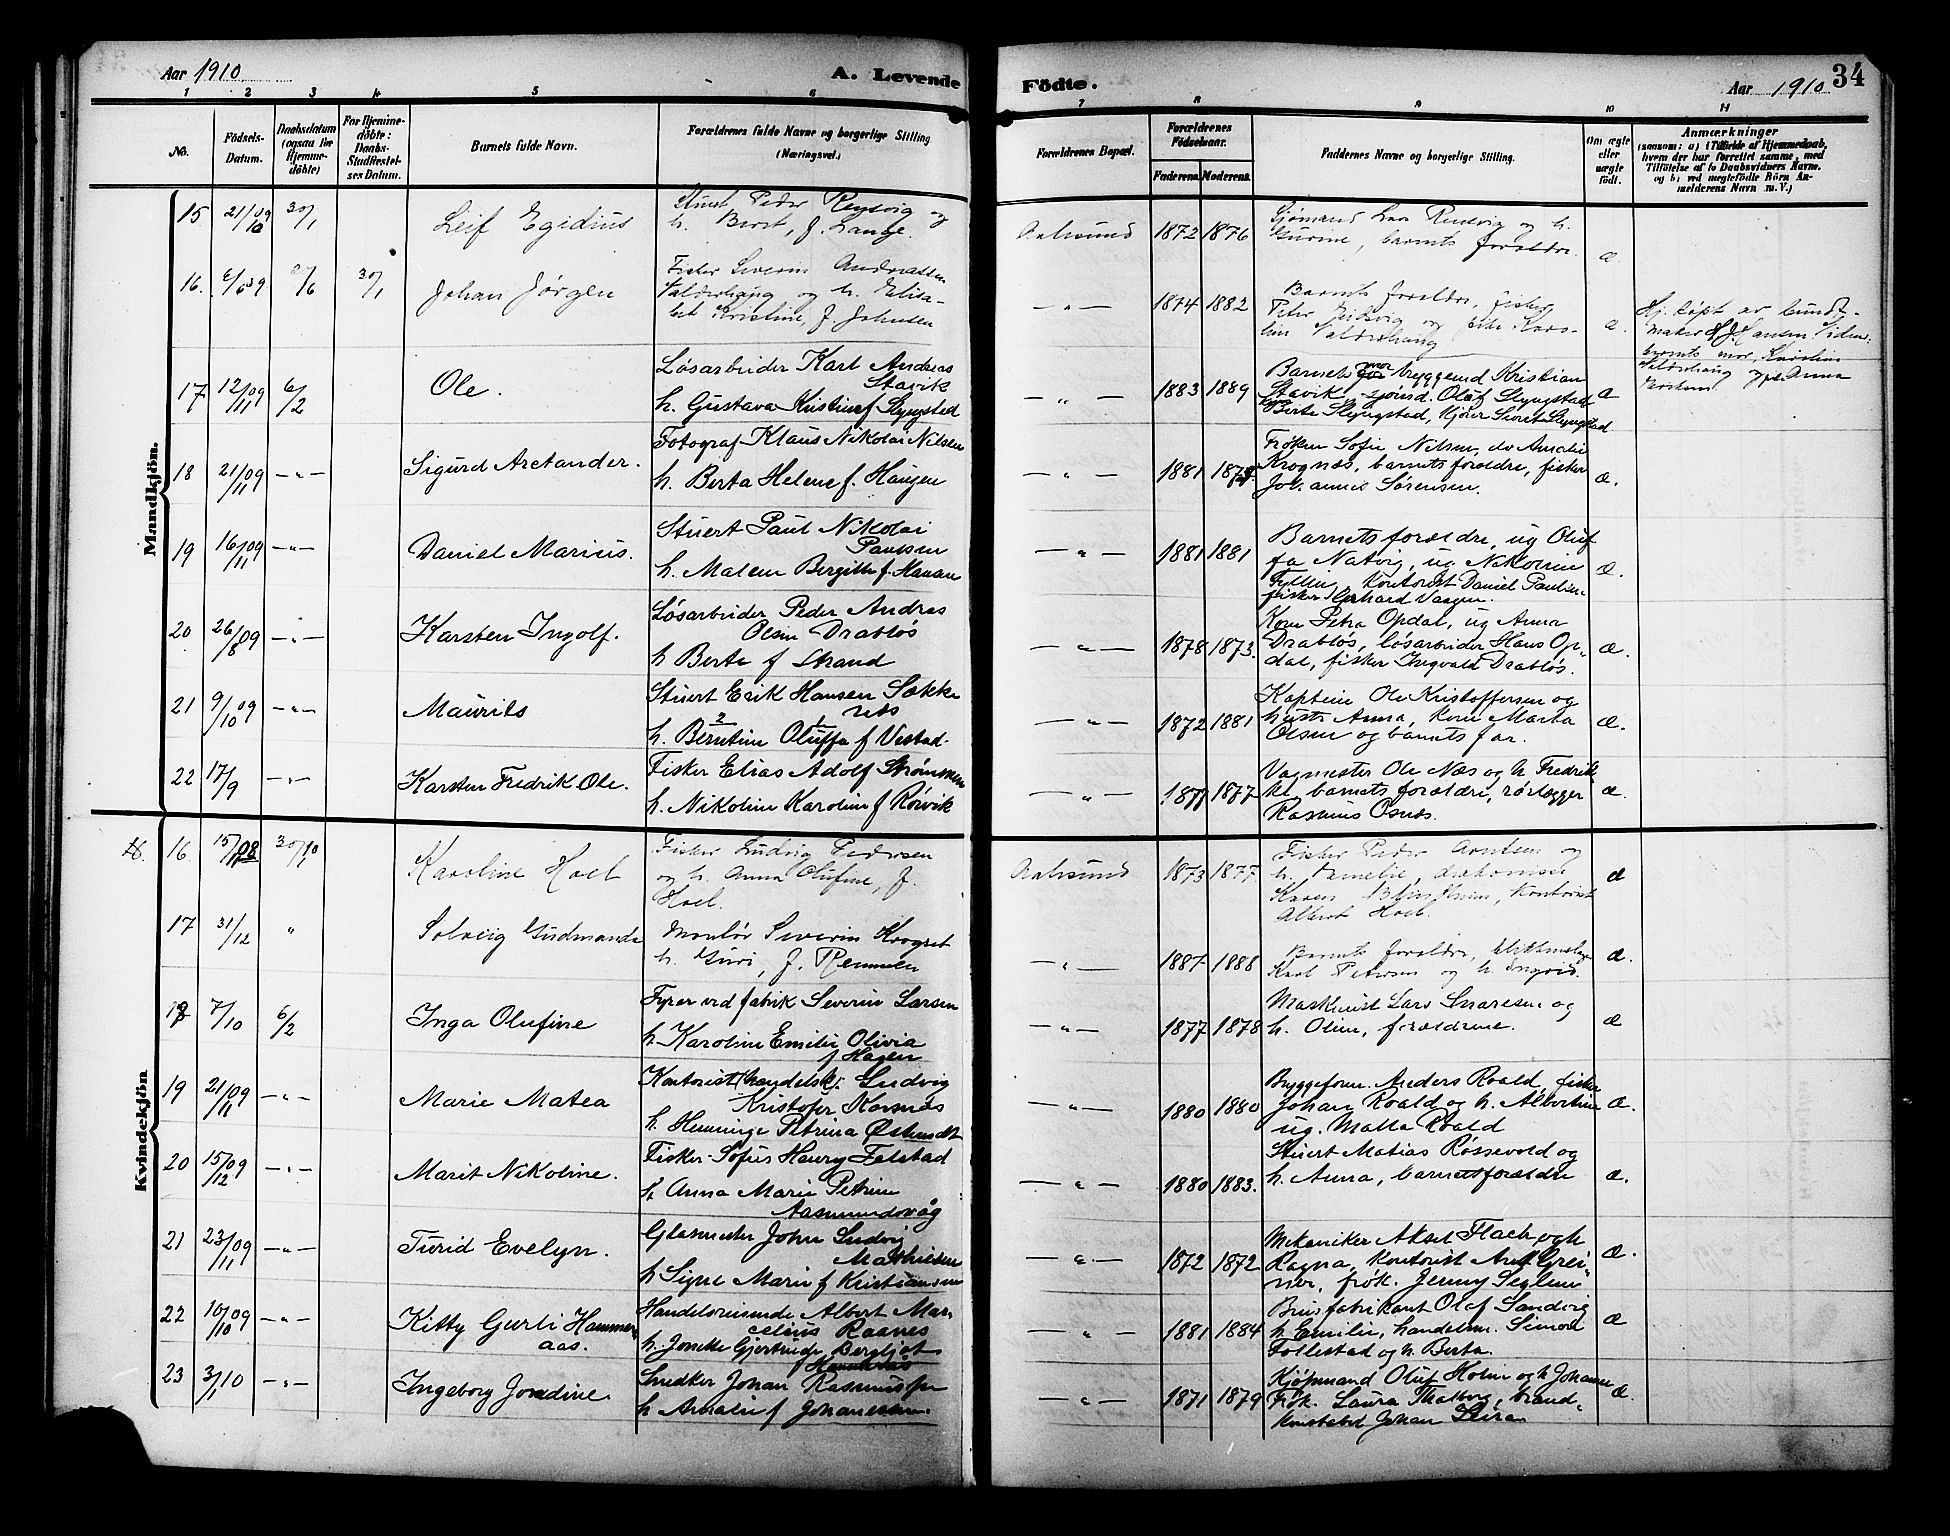 Aar 1910
A. Levende
Födte.
Aar 1910
34
1 2 3 4 5 6 7 8 9 10 11
No.
Födsels-
Datum.
Daabsdatum
(ogsaa for
Hjemme-
döbte)
For Hjemme-
döbte:
Daabs-
Stadfæstel-
ses Datum.
Barnets fulde Navn.
Forældrenes fulde Navne og borgerlige Stilling
(Næringsvei.)
Forældrenes Bopæl.
Forældrenes
Födselsaar.
Faderens.
Moderens.
Faddernes Navne og borgerlige Stilling.
Om ægte
eller
uægte
födt.
Anmærkninger
(saasom: a) i Tilfælde af Hjemmedaab,
hvem der har forrettet samme, med
Tilföielse af to Daabsvidners Navne,
og b) ved uægtefödte Börn An-
melderens Navn m. V.)
Mandkjön.
15 21/10 09 30/1 Leif Egidius
Peder og
h. Berit, f. Lange.
Aalesund 1872 1876
Sjømand Lars og h.
Gurine, barnets forældre. æ.
16. 6/6 09 30/1 Johan Jørgen
Fisker Severin Andreassen
Valderhaug og h. Elisa-
bet Kristine, f. Johnsen
— " — 1874 1882
Barnets forældre, fisker
Peter og
Valderhaug æ.
Hj. døpt av bundt-
maker H. J. Hansen
barnets mor,
Valderhaug Anna
17 12/11 09 6/2 Ole.
Løsarbeider Karl Andreas
Stavik
h. Gustava Kristine f Slyngstad
— " — 1883 1889
Barnets mor bryggemd Kristian
Stavik, sjømd. Oluf Slyngstad
Berte Slyngstad, Kjører Sivert Slyngstad æ
18 21/11 09 — " — Sigurd Arctander.
Fotograf Klaus Nikolai Nilsen
h. Berta Helene f. Haugen
— " — 1881
Frøken Sofie Nilsen, do Amalie
Krognæs, barnets foreldre, fisker
Johannes Sørensen. æ.
19 16/11 09 — " — Daniel Marius.
Stuert Paul Nikolai
Paulsen
h. Malene Bergitte f. Hanan
— " — 1881 1881
Barnets forældre, ug Oluf-
fa Natvig, ug Nikoline
Fyllin, Kontorist Daniel Paulsen
fisker Gerhard Vaagen. æ.
20 26/8 09 — " — Karsten Ingolf.
Løsarbeider Peder Andreas
Olsen Drabløs
h Berte f Strand
— " — 1878 1873.
Kone Petra Opdal, ug Anna
Drabløs, løsarbeider Hans Op-
dal, fisker Ingvald Drabløs. æ.
21 9/10 09 — " — Maurits
Stuert Erik Hansen Sække
næs
h. Berntine Oluffa f Vestad.
— " — 1872 1881
Kaptein Ole Kristoffersen og
hustr Anna, kone Marta
Olsen og barnets far. æ.
22 17/9 — " — Karsten Fredrik Ole.
Fisker Elias Adolf Strømmen
h. Nikoline Karoline f Rørvik
— " — 1877 1877
Vagmester Ole Næs og h Fredrik-
ke barnets forældre, rørlægger
Rasmus Osnæs. æ.
Kvindekjön
16 15/11 08 30/1 10 Karoline Hoel
Fisker Ludvig Pedersen
og h. Anna Olufine, f.
Hoel.
Aalesund 1873 1877
Fisker Peder Arntsen og
h. Amelie,
Karen, Kontorist
Albert Hoel. æ
17 31/12 " Solveig Gudmunda
Montør Severin Krogset
h. Guri, f. Remmem
— " — 1887 1888
Barnets foreldre,
Karl Petersen og h. Ingrid. æ.
18 7/10 6/2 Inga Olufine
Fyrer ved fabrik Severin Larsen
h. Karoline Emilie Olivia
f Hagen
— " — 1877 1878
Maskinist Lars Snaresen og
h. Oline, forældrene. æ
19 21/11 09 — " — Marie Matea
Kontorist (handelsk). Ludvig
Kristofer Korsnæs
h. Henninge Petrina Østendt
— " — 1880 1880
Bryggeform. Anders Roald, fisker
Johan Roald og h. Albertine
ug. Matta Roald æ.
20 15/12 09 — " — Marit Nikoline.
Fisker Sofus Henry Falstad
h. Anna Marie Petrine
Aasmundsvåg
— " — 1880 1883.
Stuert Matias Røssevold og
h. Anna, barnets forældre æ.
21 23/11 09 — " — Turid Evelyn.
Glasmester John Ludvig
Mathiesen
h Signe Marie f Kristiansen
— " — 1872 1872
Mekaniker Aksel Flach og h
Ragna, Kontorist Arnt Grei-
ner, frøk. Jenny Seglem æ.
22 10/10 09 — " — Kitty Gurli Hammer-
aas.
Handelsreisende Albert Mar-
celius Raanes
h. Jonette Gjertrude Bergljot
f Hammeraas
— " — 1881 1884
Brusfabrikant Olaf Sandvig
h Emilie, handelsm. Simon
Follestad og h. Berta. æ
23 3/1 10 — " — Ingeborg Jondine
Snedker Johan Rasmus
h Amalie f Johannessen.
— " — 1871 1879
Kjøpmand Oluf Holm og h Johanne
Frøk. Laura Thalberg, brand-
konstabel Johan Leira æ.